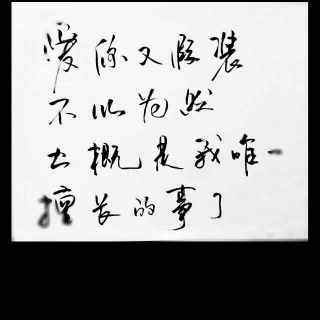 爱你又假装
不以为然
大概是我唯一
擅长的事了